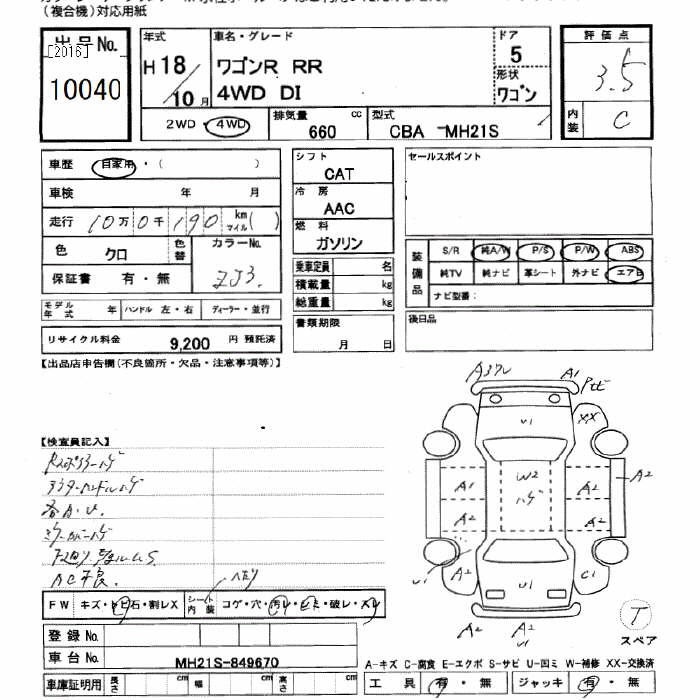 (複合機)対応用紙
出品No.
[2016]
10040
年式
H18/10月
車名・グレード
ワゴンR RR
4WD DI
ドア
5
形状
ワゴン
評価点
3.5
内装
C
2WD・4WD
排気量
660 cc
型式
CBA -MH21S
車歴 自家用・( )
車検 年 月
走行 10万0千190 km マイル( )
色 クロ 色替
カラーNo.
ZJ3.
保証書 有・無
モデル年式 年 ハンドル 左・右 ディーラー・並行
リサイクル料金 9,200 円 預託済
シフト
CAT
冷房
AAC
燃料
ガソリン
乗車定員 名
積載量 kg
総重量 kg
書類期限
月 日
セールスポイント
装備品
S/R 純A/W P/S P/W ABS
純TV 純ナビ 革シート 外ナビ エアB
ナビ型番:
後日品
【出品店申告欄(不良箇所・欠品・注意事項等)】
【検査員記入】
各A.U.
AC不良.
FW キズ・トビ石・割レX シート内装 コゲ・穴・汚レ・シミ・破レ・スレ
登録No.
車台No. MH21S-849670
車庫証明用 長さ cm 幅 cm 高さ cm
A1
U1
XX
W2
ハゲ
A1
A2
A2
A2
A2
A2
U1
C1
U1
A2
U1
T
スペア
A-キズ C-腐食 E-エクボ S-サビ U-凹ミ W-補修 XX-交換済
工具 有・無 ジャッキ 有・無